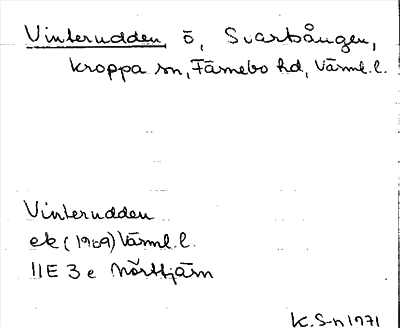 Vinterudden, ö, Svartsången,
Kroppa sn, Färnebo hd, Värml.l.
Vinterudden
ek (1909) Värml.l.
11E 3e Nörttjärn
K.S-n 1971